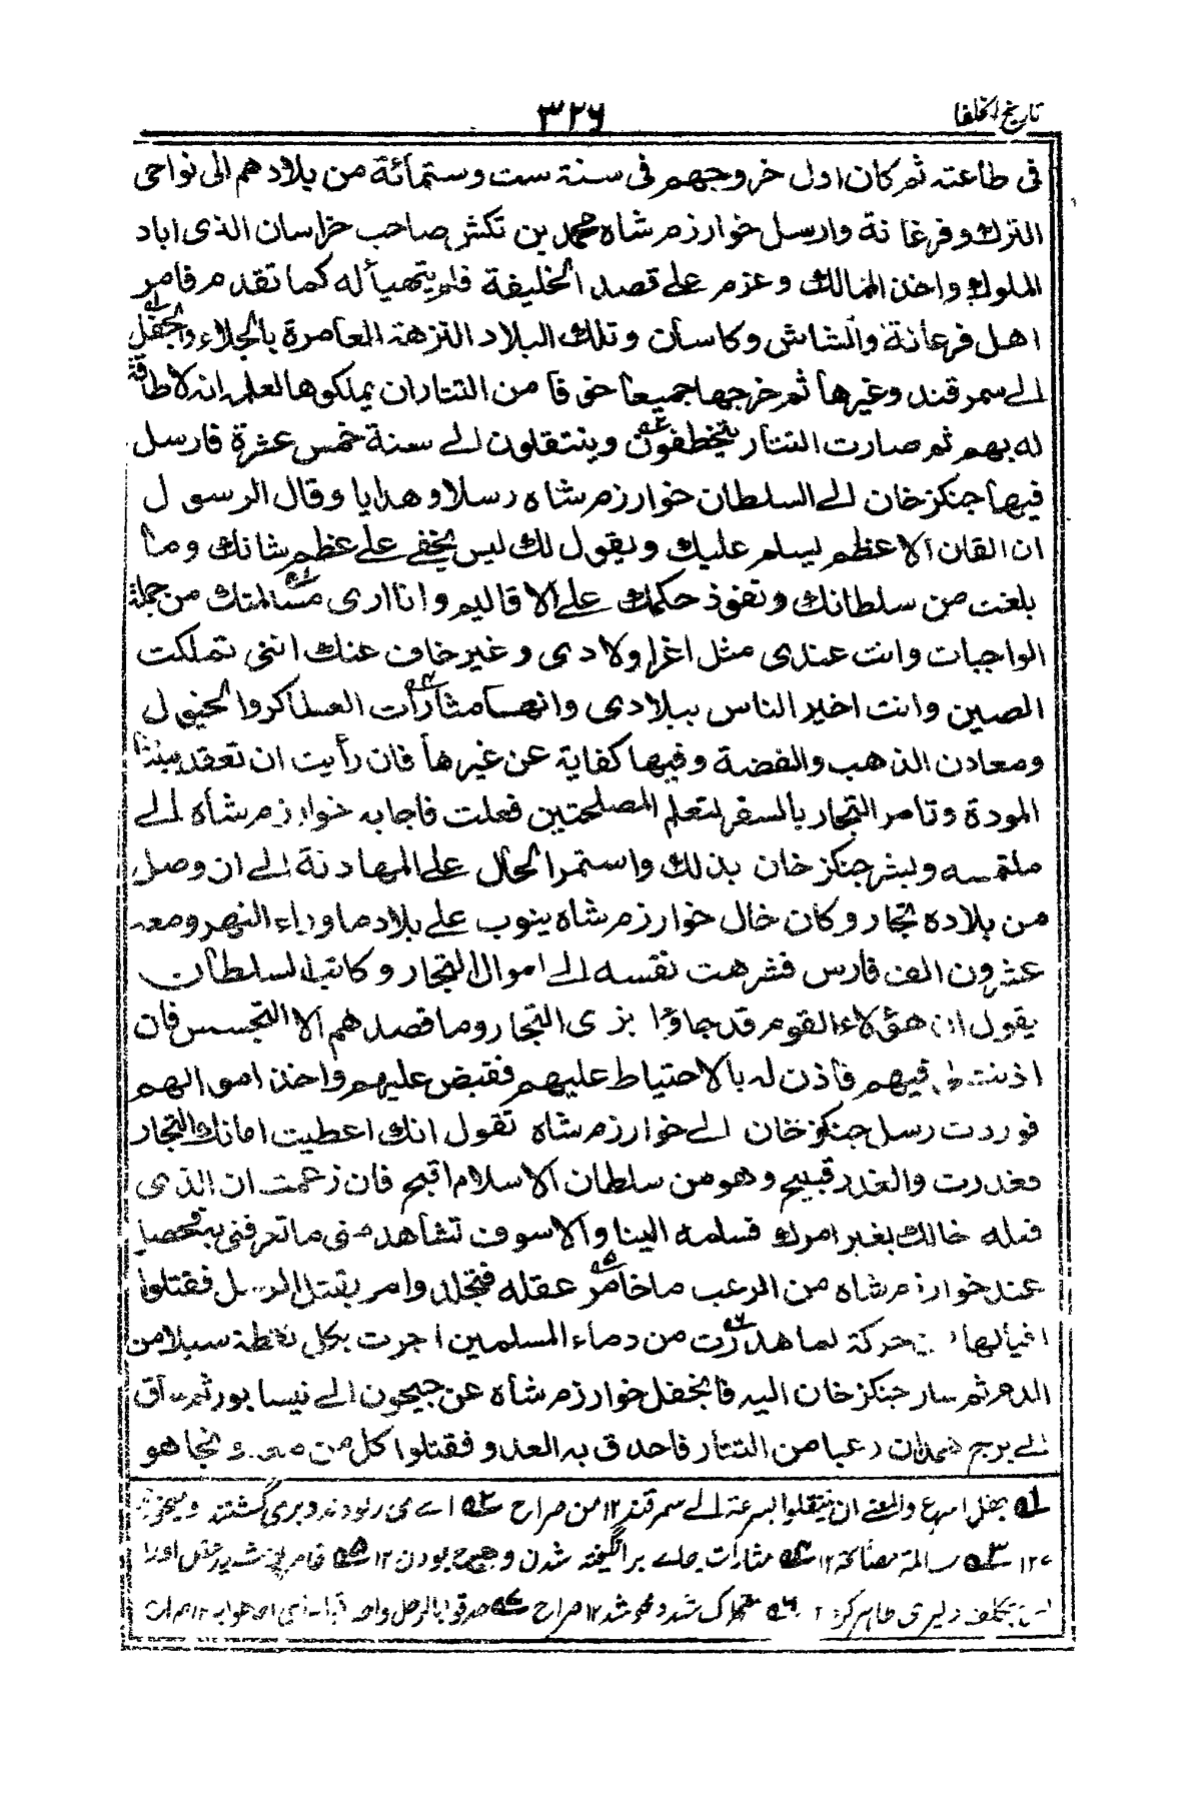 تاريخ الخلفا
٣٢٦
فى طاعته ثم كان اول خروجهم فى سنة ست وستمائة من بلادهم الى نواحى
الترك وفرغانة وارسل خوارزم شاه محمد بن تكش صاحب خراسان الذى اباد
الملوك واخذ الممالك وعزم على قصد الخليفة فلم يتهيأ له كما تقدم فامر
اهل فرغانة والشاش وكاسان وتلك البلاد النزهة العامرة بالجلاء والجفل
الى سمرقند وغيرها ثم خربها جميعا خوفا من التتار ان يملكوها لعلمه انه لا طاقة
له بهم ثم صارت التتار يتخطفون وينتقلون الى سنة خمس عشرة فارسل
فيها جنكز خان الى السلطان خوارزم شاه رسلا وهدايا وقال الرسول
ان القان الاعظم يسلم عليك ويقول لك ليس يخفى على عظم شانك وما
بلغت من سلطانك ونفوذ حكمك على الاقاليم وانا ارى مسالمتك من جملة
الواجبات وانت عندى مثل اعز اولادى وغير خاف عنك اننى تملكت
الصين وانت اخبر الناس ببلادى وانها مثارات العساكر والخيول
ومعادن الذهب والفضة وفيها كفاية عن غيرها فان رأيت ان تعقد بيننا
المودة وتامر التجار بالسفر لتعلم المصلحتين فعلت فاجابه خوارزم شاه الى
ملتمسه وبشر جنكز خان بذلك واستمر الحال على المهادنة الى ان وصل
من بلاده تجار وكان خال خوارزم شاه ينوب على بلاد ما وراء النهر ومعه
عشرون الف فارس فشرهت نفسه الى اموال التجار وكاتب السلطان
يقول ان هؤلاء القوم قد جاؤا بزى التجار وما قصدهم الا التجسس فان
اذنت لى فيهم فأذن له بالاحتياط عليهم فقبض عليهم واخذ اموالهم
فوردت رسل جنكز خان الى خوارزم شاه تقول انك اعطيت امانك التجار
فغدرت والغدر قبيح وهو من سلطان الاسلام اقبح فان زعمت ان الذى
فعله خالك بغير امرك فسلمه الينا والا سوف تشاهد منى ما تعرفنى به فحصل
عند خوارزم شاه من الرعب ما خامر عقله فتجلد وامر بقتل الرسل فقتلوا
فيالها من حركة لما هدرت من دماء المسلمين اجرت بكل نقطة سيلا من
الدم ثم سار جنكز خان اليه فانجفل خوارزم شاه عن جيحون الى نيسابور ثم ساق
الى برج همدان رعبا من التتار فاحدق به العدو فقتلوا كل من معه ونجا هو
١ه جفل اسرع والمعنى ان ينتقلوا بسرعة الى سمرقند ١٢ من صراح ٢ه اے مى ربودند و برى گشتند
١٢ ٣ه سالمة مصالحة ١٢ ٤ه مثارات جاے برانگيخته شدن و هيج بودن ١٢ ٥ه
بتكلف دليرى ظاهر كرد ١٢ ٦ه شد ١٢ صراح ٧ه